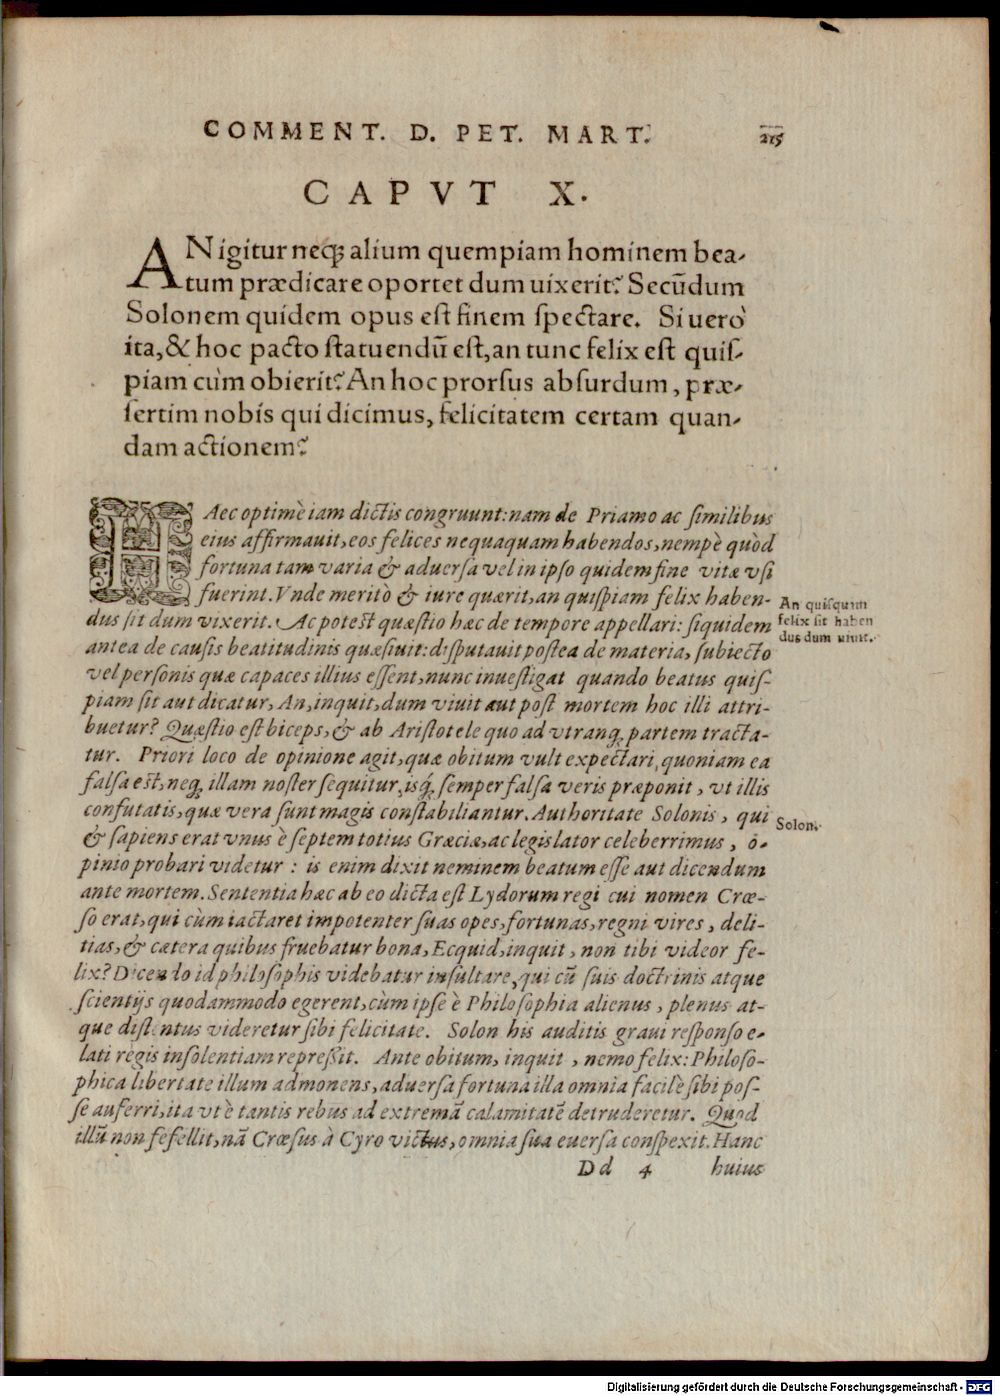 COMMENT. D. PET. MART. 215
CAPVT X.
AN igitur neq; alium quempiam hominem bea-
tum prædicare oportet dum uixerit? Secūdum
Solonem quidem opus est finem spectare. Si uerò
ita, & hoc pacto statuendū est, an tunc felix est quis-
piam cùm obierit? An hoc prorsus absurdum, præ-
sertim nobis qui dicimus, felicitatem certam quan-
dam actionem?
HAec optimè iam dictis congruunt: nam de Priamo ac similibus
eius affirmauit, eos felices nequaquam habendos, nempè quòd
fortuna tam varia & aduersa vel in ipso quidem fine vitæ vsi
fuerint. Vnde meritò & iure quærit, an quispiam felix haben-
dus sit dum vixerit. Ac potest quæstio hæc de tempore appellari: siquidem
antea de causis beatitudinis quæsiuit: disputauit postea de materia, subiecto
vel personis quæ capaces illius essent, nunc inuestigat quando beatus quis-
piam sit aut dicatur, An, inquit, dum viuit aut post mortem hoc illi attri-
buetur? Quæstio est biceps, & ab Aristotele quo ad vtranq; partem tracta-
tur. Priori loco de opinione agit, quæ obitum vult expectari, quoniam ea
falsa est, neq; illam noster sequitur, isq; semper falsa veris præponit, vt illis
confutatis, quæ vera sunt magis constabiliantur. Authoritate Solonis, qui
& sapiens erat vnus è septem totius Græciæ, ac legislator celeberrimus, o-
pinio probari videtur: is enim dixit neminem beatum esse aut dicendum
ante mortem. Sententia hæc ab eo dicta est Lydorum regi cui nomen Cræ-
so erat, qui cùm iactaret impotenter suas opes, fortunas, regni vires, deli-
tias, & cætera quibus fruebatur bona, Ecquid, inquit, non tibi videor fe-
lix? Dicendo id philosophis videbatur insultare, qui cū suis doctrinis atque
scientijs quodammodo egerent, cùm ipse è Philosophia alienus, plenus at-
que distentus videretur sibi felicitate. Solon his auditis graui responso e-
lati regis insolentiam repreßit. Ante obitum, inquit, nemo felix: Philoso-
phica libertate illum admonens, aduersa fortuna illa omnia facilè sibi pos-
se auferri, ita vt è tantis rebus ad extremā calamitatē detruderetur. Quod
illū non fefellit, nā Cræsus à Cyro victus, omnia sua euersa conspexit. Hanc
Dd 4 huius
An quisquam
felix sit haben
dus dum uiuit.
Solon.
Digitalisierung gefördert durch die Deutsche Forschungsgemeinschaft - DFG